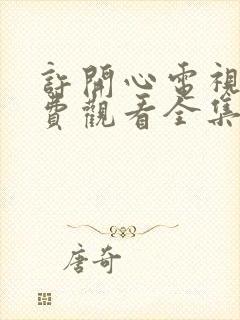 許開心電視
費觀看全集
唐奇